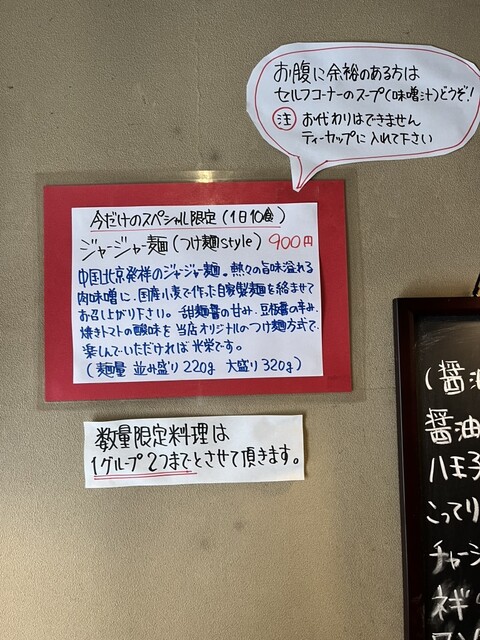 お腹に余裕のある方は
セルフコーナーのスープ(味噌汁)どうぞ!
注 お代わりはできません
ティーカップに入れて下さい
今だけのスペシャル限定(1日10食)
ジャージャー麺(つけ麺style) 900円
中国北京発祥のジャージャー麺。熱々の旨味溢れる
肉味噌に、国産小麦で作った自家製麺を絡ませて
お召し上がり下さい。甜麺醤の甘み、豆板醤の辛み、
焼きトマトの酸味を当店オリジナルのつけ麺方式で
楽しんでいただければ光栄です。
(麺量 並み盛り220g 大盛り320g)
数量限定料理は
1グループ2つまでとさせて頂きます。
(醤油
醤油
八王子
こってり
チャーシ
ネギ
ワン